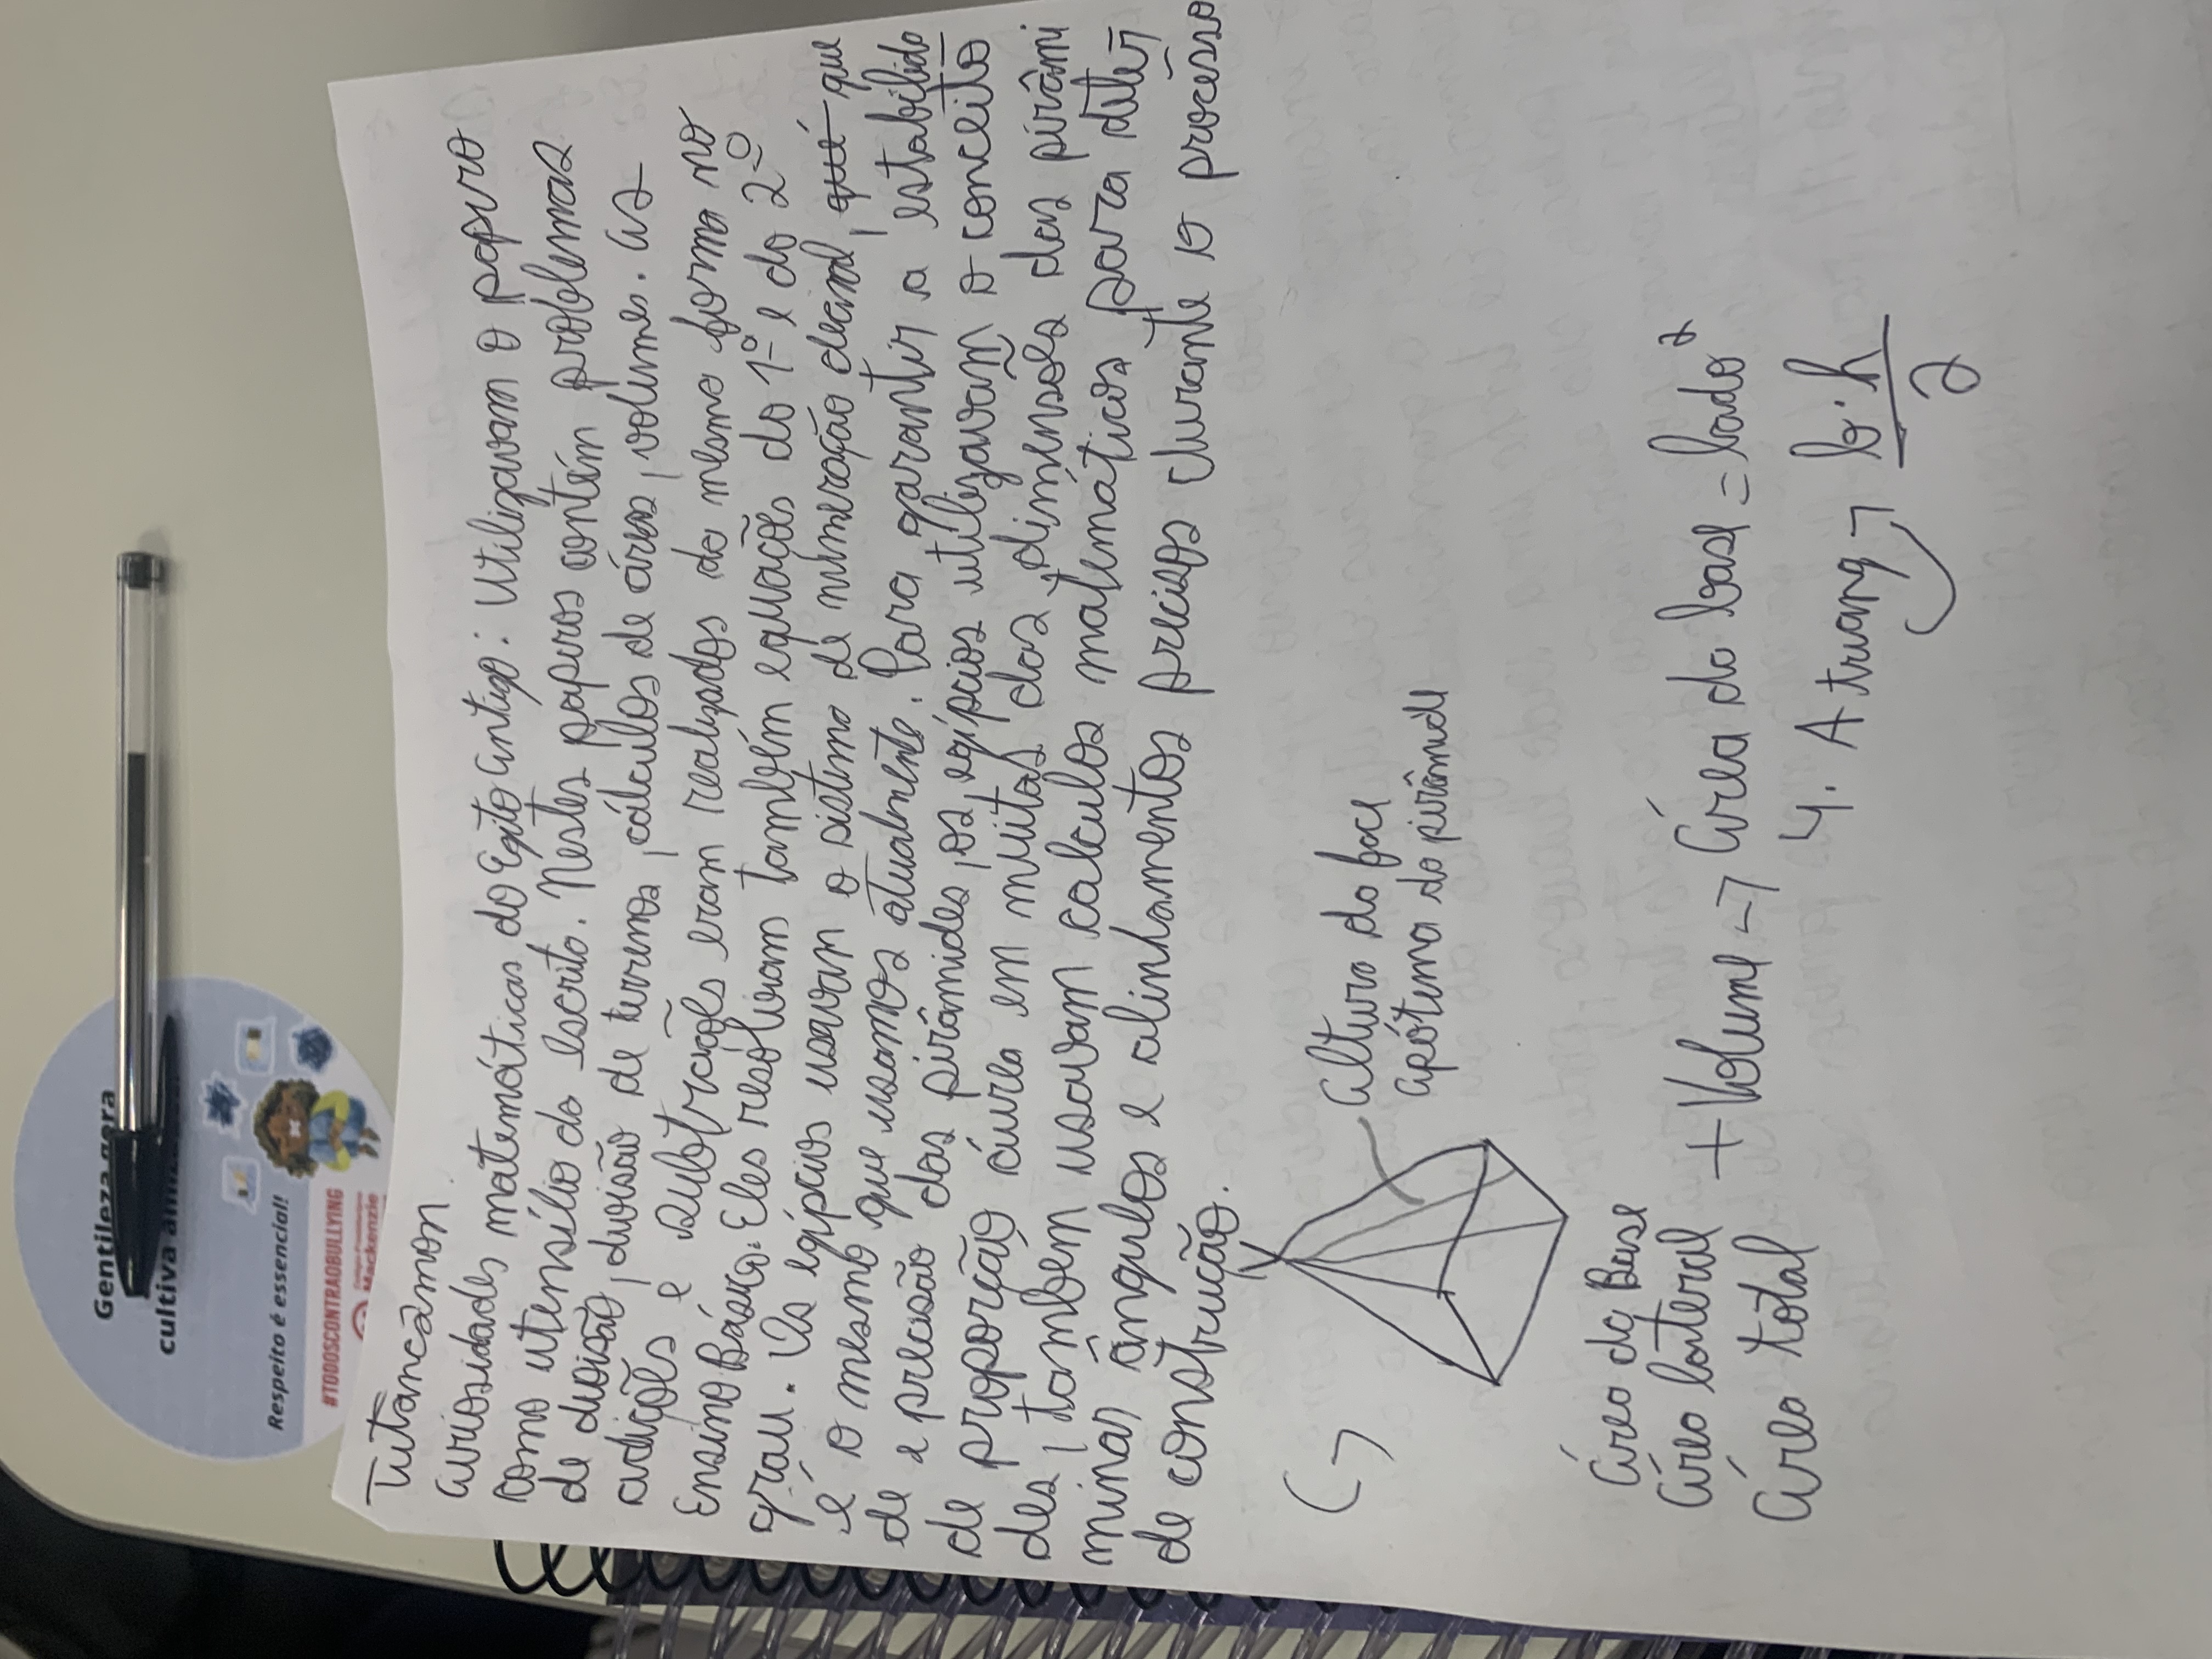 Gentileza gera
cultiva
Respeito é essencial!
#TODOSCONTRAOBULLYING
Mackenzie
Tutancâmon
Curiosidades matemáticas do Egito Antigo: Utilizavam o papiro
como utensílio da escrita. Nestes papiros contém problemas
de divisão, divisão de terrenos, cálculos de áreas, volumes. As
adições e subtrações eram realizadas da mesma forma no
Ensino Básico. Eles resolviam também equações do 1º e do 2º
grau. Os egípcios usavam o sistema de numeração decimal, que que
é o mesmo que usamos atualmente. Para garantir a estabilida
de e precisão das pirâmides, os egípcios utilizavam o conceito
de proporção áurea em muitas das dimensões das pirâmi
des, tambem usavam calculos matemáticos para deter
minar ângulos e alinhamentos precisos durante o processo
de construção.
V
Altura da face
Apótema da pirâmide
Área da Base
Área lateral + Volume → Área da base = lado²
Área total
4. A triang → b.h
2